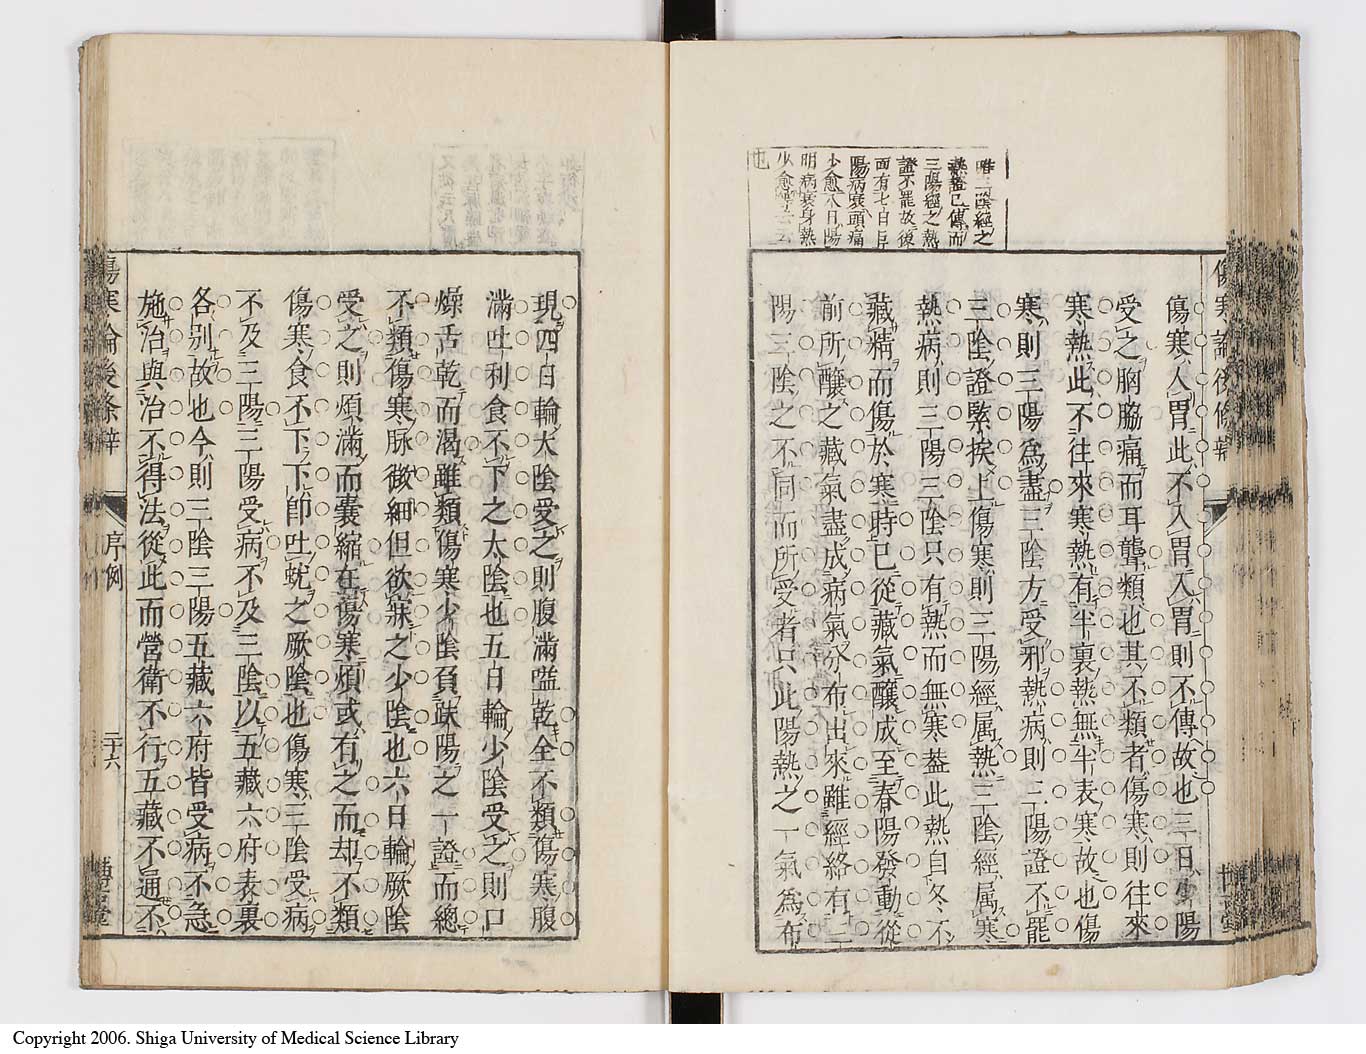 唯三陰經之
熱證已傳而
三陽經之熱
證不罷故後
面有七日巨
陽病衰頭痛
少愈八日陽
明病衰身熱
少愈等云云
也
傷寒論後條辨
傷寒人胃此不入胃入胃則不傳故也三日少陽
受之胸脇痛而耳聾類也其不類者傷寒則往來
寒熱此不往來寒熱有半裏熱無半表寒故也傷
寒則三陽為盡三陰方受邪熱病則三陽證不罷
三陰證緊挨上傷寒則三陽經属熱三陰經属寒
熱病則三陽三陰只有熱而無寒蓋此熱自冬不
藏精而傷於寒時已從藏氣釀成至春陽發動從
前所釀之藏氣盡成病氣分布出來雖經絡有三
陽三陰之不同而所受者只此陽熱之一氣為布
現四日輪太陰受之則腹滿嗌乾全不類傷寒腹
滿吐利食不下之太陰也五日輪少陰受之則口
燥舌乾而渴雖類傷寒少陰負趺陽之一證而總
不類傷寒脉微細但欲寐之少陰也六日輪厥陰
受之則煩滿而囊縮在傷寒煩或有之而却不類
傷寒食不下下卽吐蚘之厥陰也傷寒三陰受病
不及三陽三陽受病不及三陰以五藏六府表裏
各別故也今則三陰三陽五藏六府皆受病不急
施治與治不得法從此而營衛不行五藏不通不
傷寒論後條辨
序例
二十六
博古堂
Copyright 2006. Shiga University of Medical Science Library